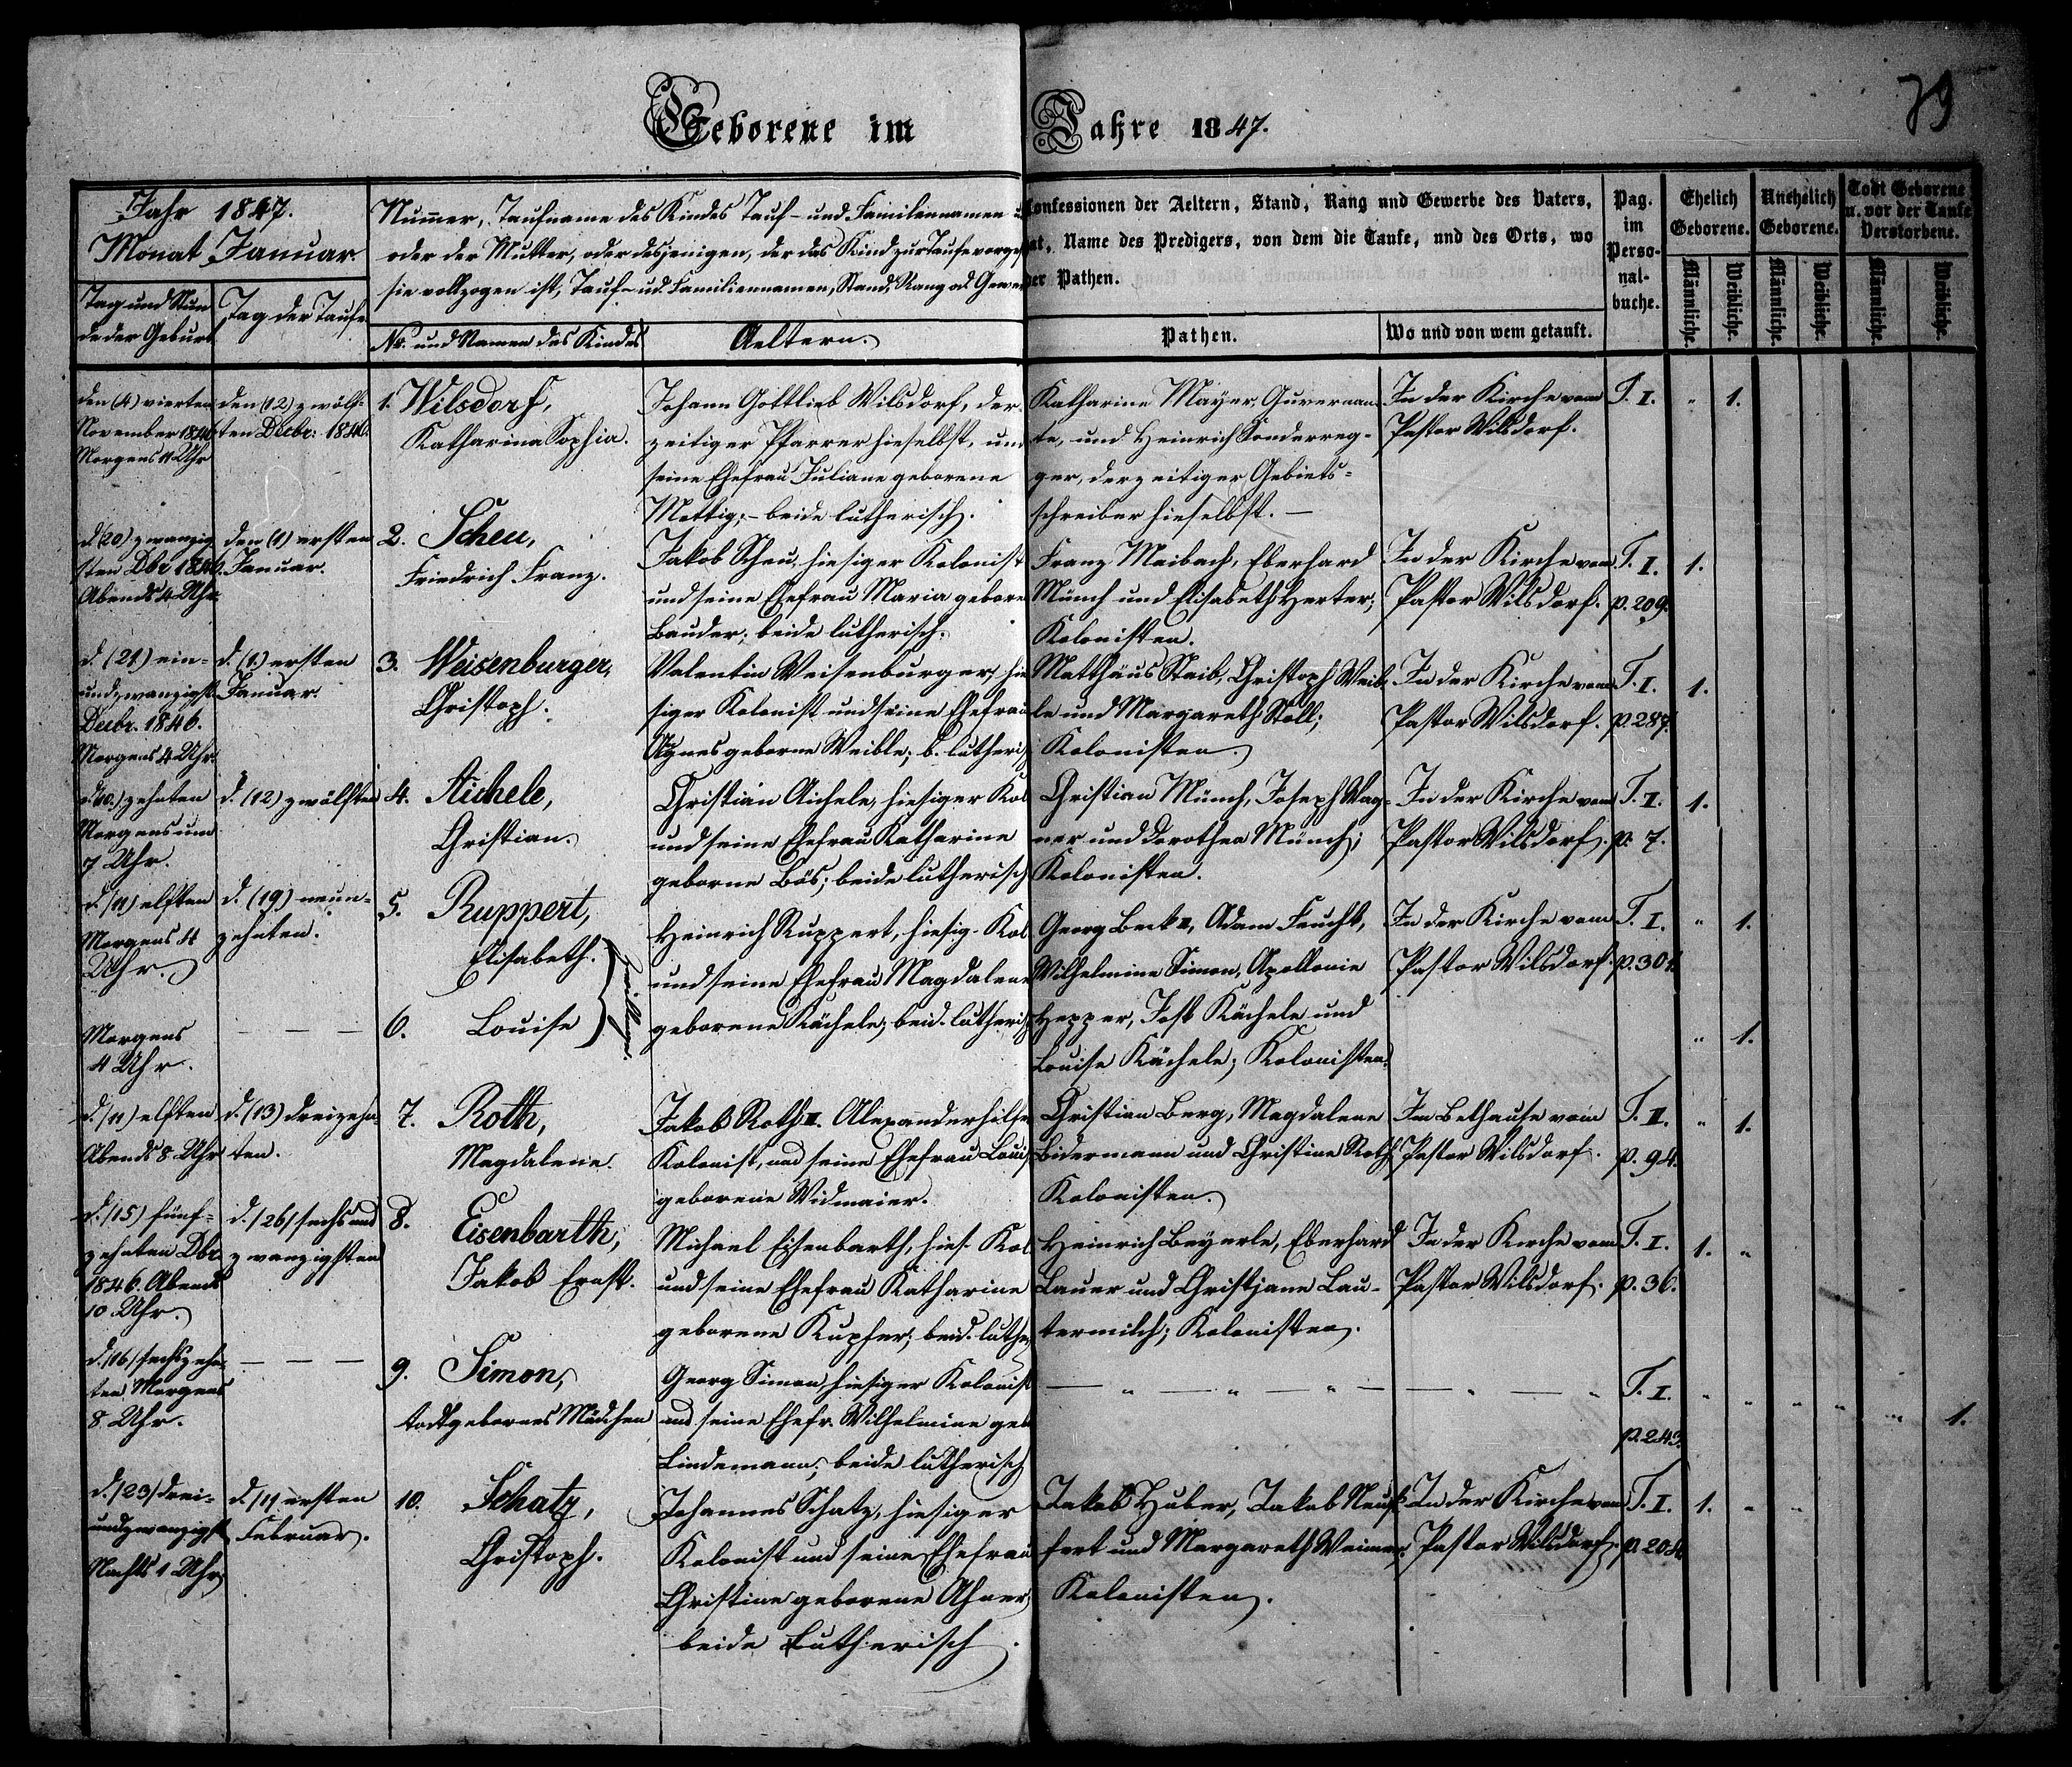 79
Geborene im Jahre 1847.
Jahr 1847.
Monat Januar.
Tag und Stun
de der Geburt
Tag der Taufe
Numer, Taufname des Kindes Tauf- und Familiennamen
oder der Mutter, oder desjenigen, der das Kind zur Taufe vorge
sie vollzogen ist, Tauf- ud. Familiennamen, Stand, Rang od. Gewer
Nr. und Namen des Kindes
Aeltern.
Confessionen der Aeltern, Stand, Rang und Gewerbe des Vaters,
hat, Name des Predigers, von dem die Taufe, und des Orts, wo
der Pathen.
Pathen.
Wo und von wem getauft.
Pag.
im
Perso-
nal-
buche.
Ehelich
Geborene.
Unehelich
Geborene.
Todt Geborene
u. vor der Taufe
Verstorbene.
Männliche.
Weibliche.
Männliche.
Weibliche.
Männliche.
Weibliche.
den (4) vierten
November 1846
Morgens 11 Uhr
den (12) zwölf-
ten Decbr: 1846.
1. Wilsdorf,
Katharina Sophia.
Johann Gottlieb Wilsdorf, der-
zeitiger Pfarrer hieselbst, und
seine Ehefrau Juliane geborene
Mattig; - beide lutherisch.
Katharine Mayer, Guvernan-
te, und Heinrich Sonderreg-
ger, derzeitiger Gebiets-
schreiber hieselbst. -
In der Kirche vom
Pastor Wilsdorf.
T. I.
" 1.
d. (20) zwanzig
sten Dbr 1846.
Abends 4 Uhr.
den (1) ersten
Januar.
2. Scheu,
Friedrich Franz.
Jakob Scheu, hiesiger Kolonist
und seine Ehefrau Maria gebore
Bauder; beide lutherisch.
Franz Maibach, Eberhard
Münch und Elisabeth Herter;
Kolonisten.
In der Kirche vom
Pastor Wilsdorf.
T. I.
p. 209.
1.
d. (21) ein-
undzwanzigst
Decbr. 1846.
Morgens 4 Uhr.
d. (1.) ersten
Januar.
3. Weisenburger,
Christoph.
Valentin Weisenburger, hie
siger Kolonist und seine Ehefrau
Agnes geborne Weible; b. lutherisch
Matthäus Staib, Christoph Weib-
le und Margareth Stoll;
Kolonisten.
In der Kirche vom
Pastor Wilsdorf.
T. I.
p. 287.
1.
d. (10.) zehnten
Morgens um
7 Uhr.
d. (12) zwölften
4. Aichele,
Christian.
Christian Aichele, hiesiger Kol
und seine Ehefrau Katharine
geborne Bös; beide lutherisch
Christian Münch, Joseph Wag-
ner und Dorothea Münch;
Kolonisten.
In der Kirche vom
Pastor Wilsdorf.
T. I.
p. 7.
1.
d. (11) elften
Morgens 4
Uhr.
d. (19) neun-
zehnten.
5. Ruppert,
Elisabeth.
Zwillinge
Heinrich Ruppert, hiesig. Kol
und seine Ehefrau Magdalene
geborene Kächele; beid. lutherisch
Georg Beck II, Adam Feucht,
Wilhelmine Simon, Apollonie
Hepper, Jost Kächele und
Louise Kächele; Kolonisten.
In der Kirche vom
Pastor Wilsdorf.
T. I.
p. 301.
" 1.
Morgens
4 Uhr.
— — —
6. Louise
" 1.
d. (11) elften
Abends 8 Uhr
d. (13) dreizehn-
ten.
7. Roth,
Magdalene.
Jakob Roth II. Alexanderhilfer
Kolonist, und seine Ehefrau Louis
geborene Widmaier.
Christian Berg, Magdalene
Bidermann und Christine Roth;
Kolonisten.
Im Bethause vom
Pastor Wilsdorf.
T. II.
p. 94.
" 1.
d. (15) fünf-
zehnten Dbr
1846. Abends
10 Uhr.
d. (26) sechs und
zwanzigsten
8. Eisenbarth,
Jakob Ernst.
Michael Eisenbarth, hies. Kol
und seine Ehefrau Katharine
geborene Kupfer; beid. luthe
Heinrich Beyerle, Eberhard
Bauer und Christjane Lau-
termilch; Kolonisten.
In der Kirche vom
Pastor Wilsdorf.
T. I.
p. 36.
1. "
d. (16) sechszehn-
ten Morgens
8 Uhr.
— — —
9. Simon,
todtgebornes Mädchen
Georg Simon, hiesiger Kolonist
und seine Ehefr. Wilhelmine geb
Lindemann; beide lutherisch
— " — " — " — — " — "
T. I.
p. 243.
" " " " " 1.
d. (23) drei-
undzwanzigst
Nachts 1 Uhr,
d. (1) ersten
Februar.
10. Schatz,
Christoph.
Johannes Schatz, hiesiger
Kolonist und seine Ehefrau
Christine geborene Ahner;
beide Lutherisch.
Jakob Huber, Jakob Neuf-
fert und Margareth Weimer;
Kolonisten.
In der Kirche vom
Pastor Wilsdorf.
T. I.
p. 204
1. " "